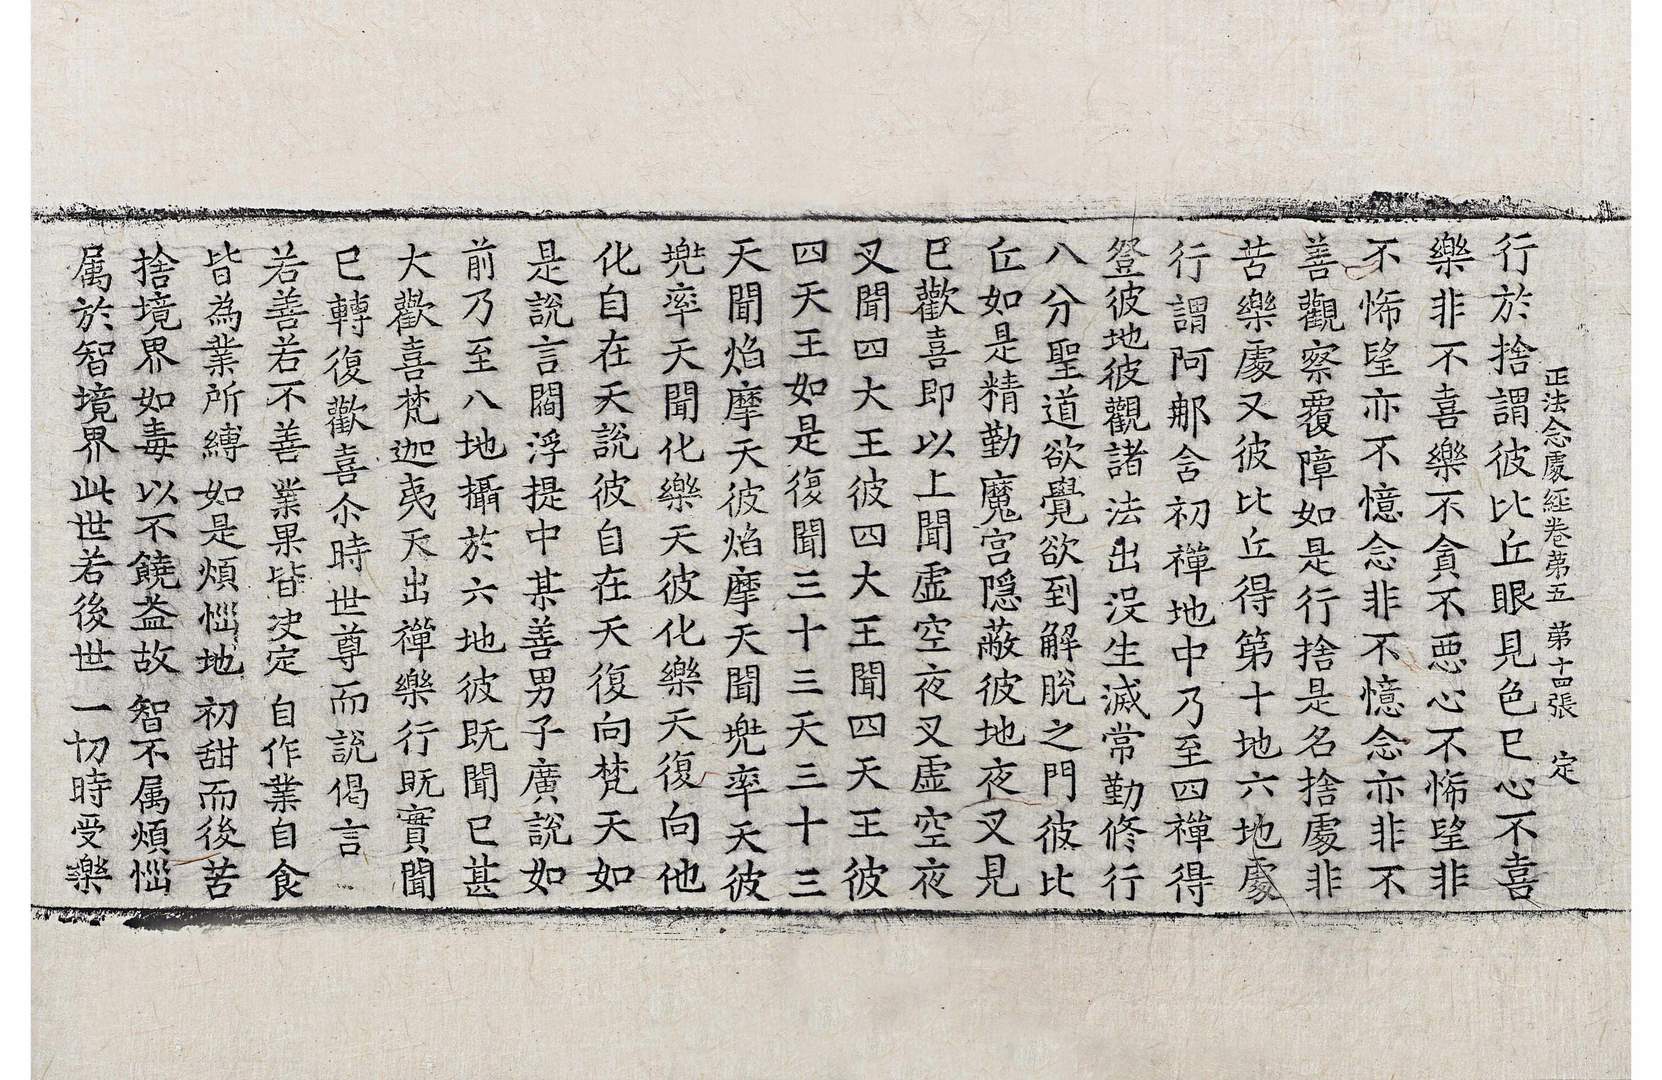 正法念處經卷第五 第十四張 定
行於捨謂彼比丘眼見色已心不喜
樂非不喜樂不貪不惡心不悕望非
不悕望亦不憶念非不憶念亦非不
善觀察覆障如是行捨是名捨處非
苦樂處又彼比丘得第十地六地處
行謂阿那含初禪地中乃至四禪得
登彼地彼觀諸法出沒生滅常勤修行
八分聖道欲覺欲到解脫之門彼比
丘如是精勤魔宮隱蔽彼地夜叉見
已歡喜即以上聞虛空夜叉虛空夜
叉聞四大王彼四大王聞四天王彼
四天王如是復聞三十三天三十三
天聞焰摩天彼焰摩天聞兜率天彼
兜率天聞化樂天彼化樂天復向他
化自在天說彼自在天復向梵天如
是說言閻浮提中某善男子廣說如
前乃至八地攝於六地彼既聞已甚
大歡喜梵迦夷天出禪樂行既實聞
已轉復歡喜尒時世尊而說偈言
若善若不善 業果皆決定 自作業自食
皆為業所縛 如是煩惱地 初甜而後苦
捨境界如毒 以不饒益故 智不属煩惱
属於智境界 此世若後世 一切時受樂